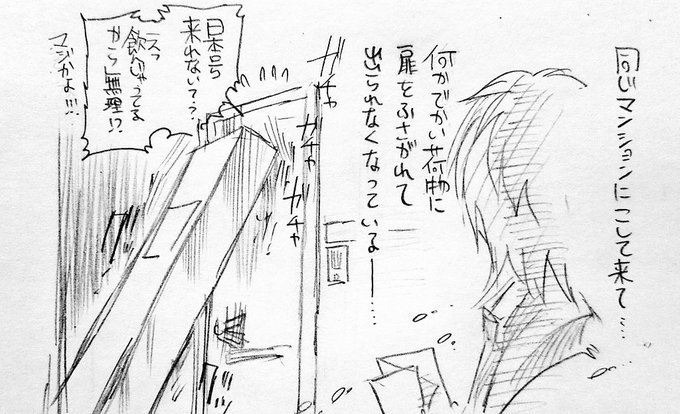 同じマンションにこして来て…
何かでかい荷物に
扉をふさがれて
出られなくなっているー…
ガチャ
ガチャ
ガチャ
日本号
来れないって?
飲んじゃってる
から」無理!?
マジかよ!!!